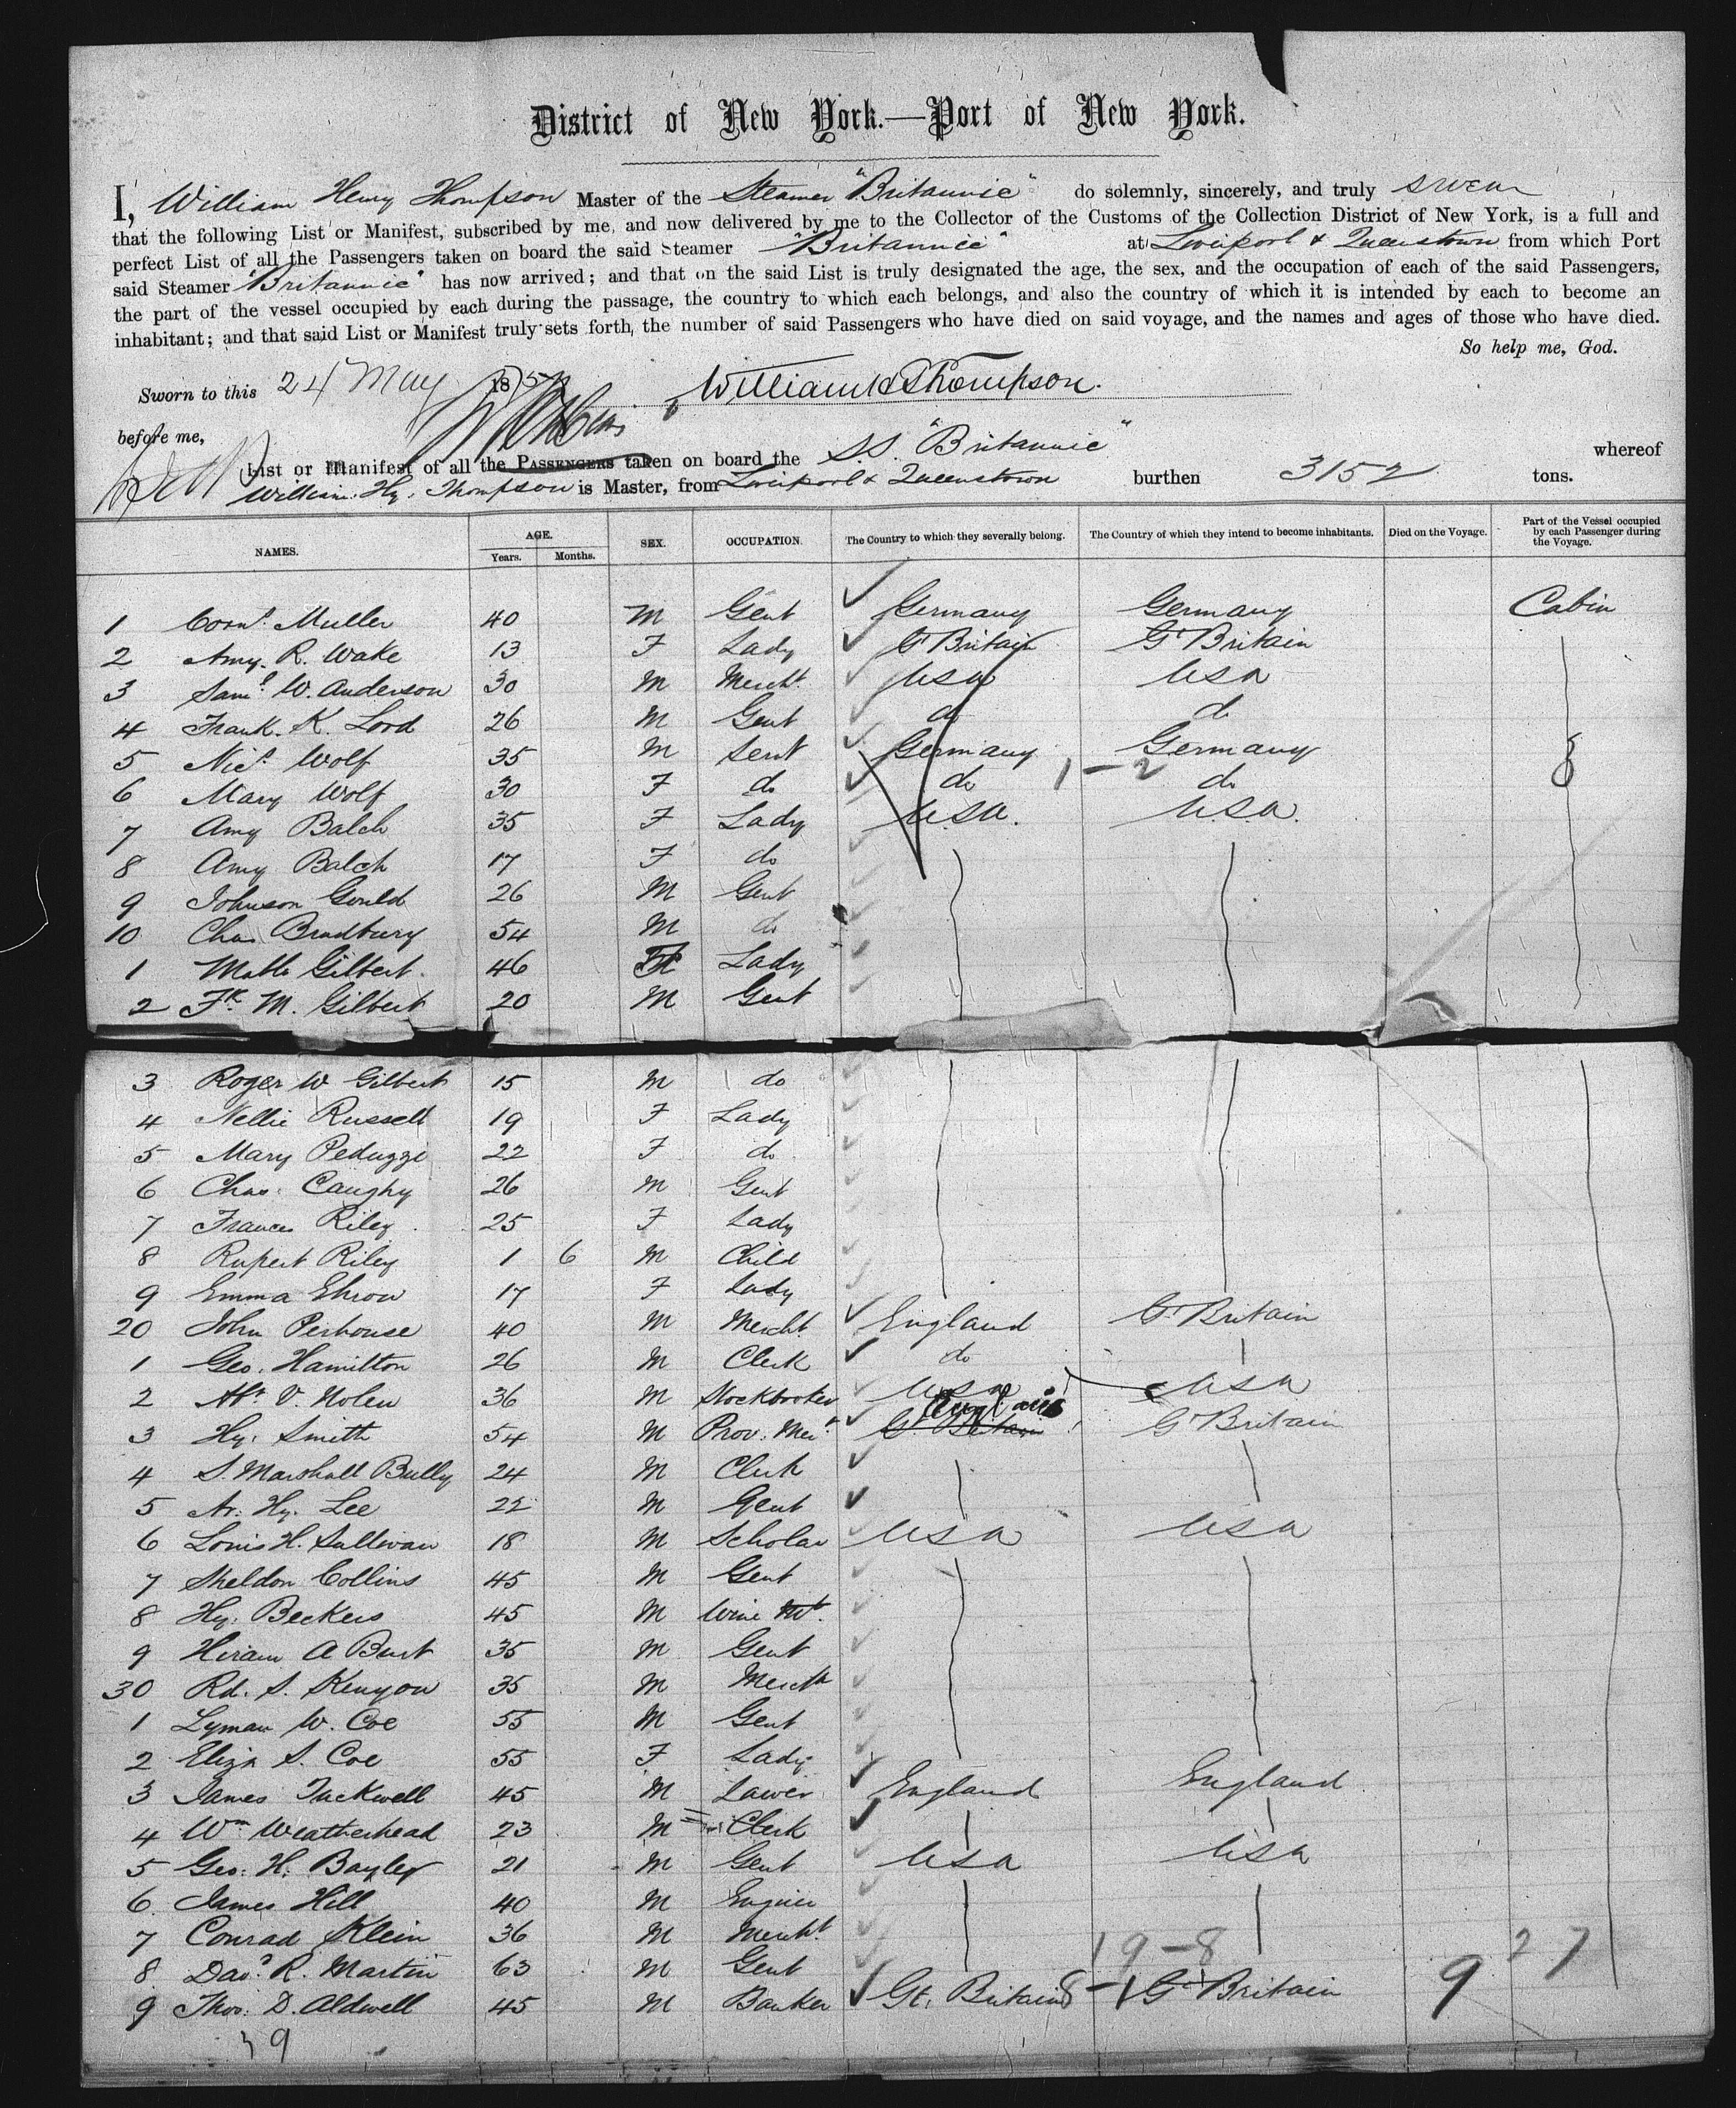 District of New York.—Port of New York.
I, William Henry Thompson Master of the Steamer "Britannic" do solemnly, sincerely, and truly swear
that the following List or Manifest, subscribed by me, and now delivered by me to the Collector of the Customs of the Collection District of New York, is a full and
perfect List of all the Passengers taken on board the said Steamer "Britannic" at Liverpool & Queenstown from which Port
said Steamer "Britannic" has now arrived; and that on the said List is truly designated the age, the sex, and the occupation of each of the said Passengers,
the part of the vessel occupied by each during the passage, the country to which each belongs, and also the country of which it is intended by each to become an
inhabitant; and that said List or Manifest truly sets forth, the number of said Passengers who have died on said voyage, and the names and ages of those who have died.
So help me, God.
Sworn to this 24 May 1875 William H Thompson.
before me,
List or Manifest of all the PASSENGERS taken on board the S.S. "Britannic" whereof
William Hy. Thompson is Master, from Liverpool & Queenstown burthen 3152 tons.
NAMES. AGE. Years. Months. SEX. OCCUPATION. The Country to which they severally belong. The Country of which they intend to become inhabitants. Died on the Voyage. Part of the Vessel occupied by each Passenger during the Voyage.
1 Corns. Muller 40 M Gent Germany Germany Cabin
2 Amy. R. Wake 13 F Lady Gt Britain Gt Britain
3 Saml. W. Anderson 30 M Mercht. USA USA
4 Frank. K. Lord 26 M Gent do do
5 Nics. Wolf 35 M Servt Germany Germany
6 Mary Wolf 30 F do do 1-2 do
7 Amy Balch 35 F Lady U.S.A. U.S.A.
8 Amy Balch 17 F do
9 Johnson Gould 26 M Gent
10 Chas Bradbury 54 M do
1 Gilbert. 46 F Lady
2 Fk. M. Gilbert 20 M Gent
3 Roger W Gilbert 15 M do
4 Nellie Russell 19 F Lady
5 Mary Peduzzi 22 F do
6 Chas. Caughy 26 M Gent
7 Frances Riley 25 F Lady
8 Rupert Riley 1 6 M Child
9 Emma Throw 17 F Lady
20 John Perhouse 40 M Mercht. England Gt Britain
1 Geo. Hamilton 26 M Clerk do
2 V. Nolen 36 M Stockbroker USA USA
3 Hy. Smith 54 M Prov. Mert. Gt Britain England Gt Britain
4 S. Marshall Bully 24 M Clerk
5 Ar. Hy. Lee 22 M Gent
6 Louis H. Sullivan 18 M Scholar USA USA
7 Sheldon Collins 45 M Gent
8 Hy. Beckers 45 M Wine Mt.
9 Hiram A Burt 35 M Gent
30 Rd. S. Kenyon 35 M Mercht
1 Lyman W. Coe 55 M Gent
2 Eliza S. Coe 55 F Lady
3 James Tuckwell 45 M Lawer England England
4 Wm Weatherhead 23 M Clerk
5 Geo. H. Bayley 21 M Gent USA USA
6. James Hill 40 M Enginer
7 Conrad Klein 36 M Mercht.
8. Davd. R. Martin 63 M Gent 19-8
9 Thos. D. Aldwell 45 M Banker Gt. Britain 8-1 Gt Britain 9 27
39